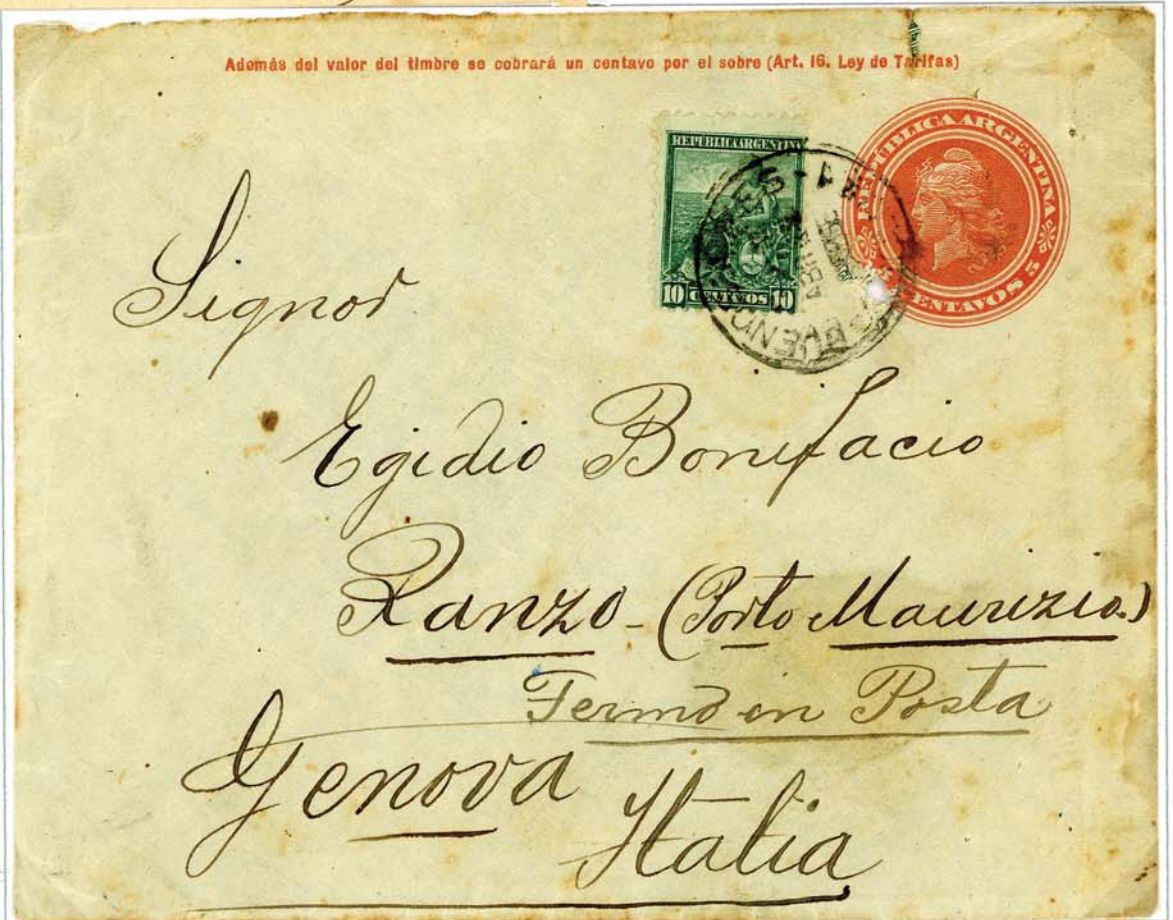 Además del valor del timbre se cobrará un centavo por el sobre (Art. 16. Ley de Tarifas)
REPUBLICA ARGENTINA
10 CENTAVOS 10
REPÚBLICA ARGENTINA
CENTAVOS 5
BUENOS
Signor
Egidio Bonifacio
Ranzo - (Porto Maurizio.)
Fermo in Posta
Genova
Italia